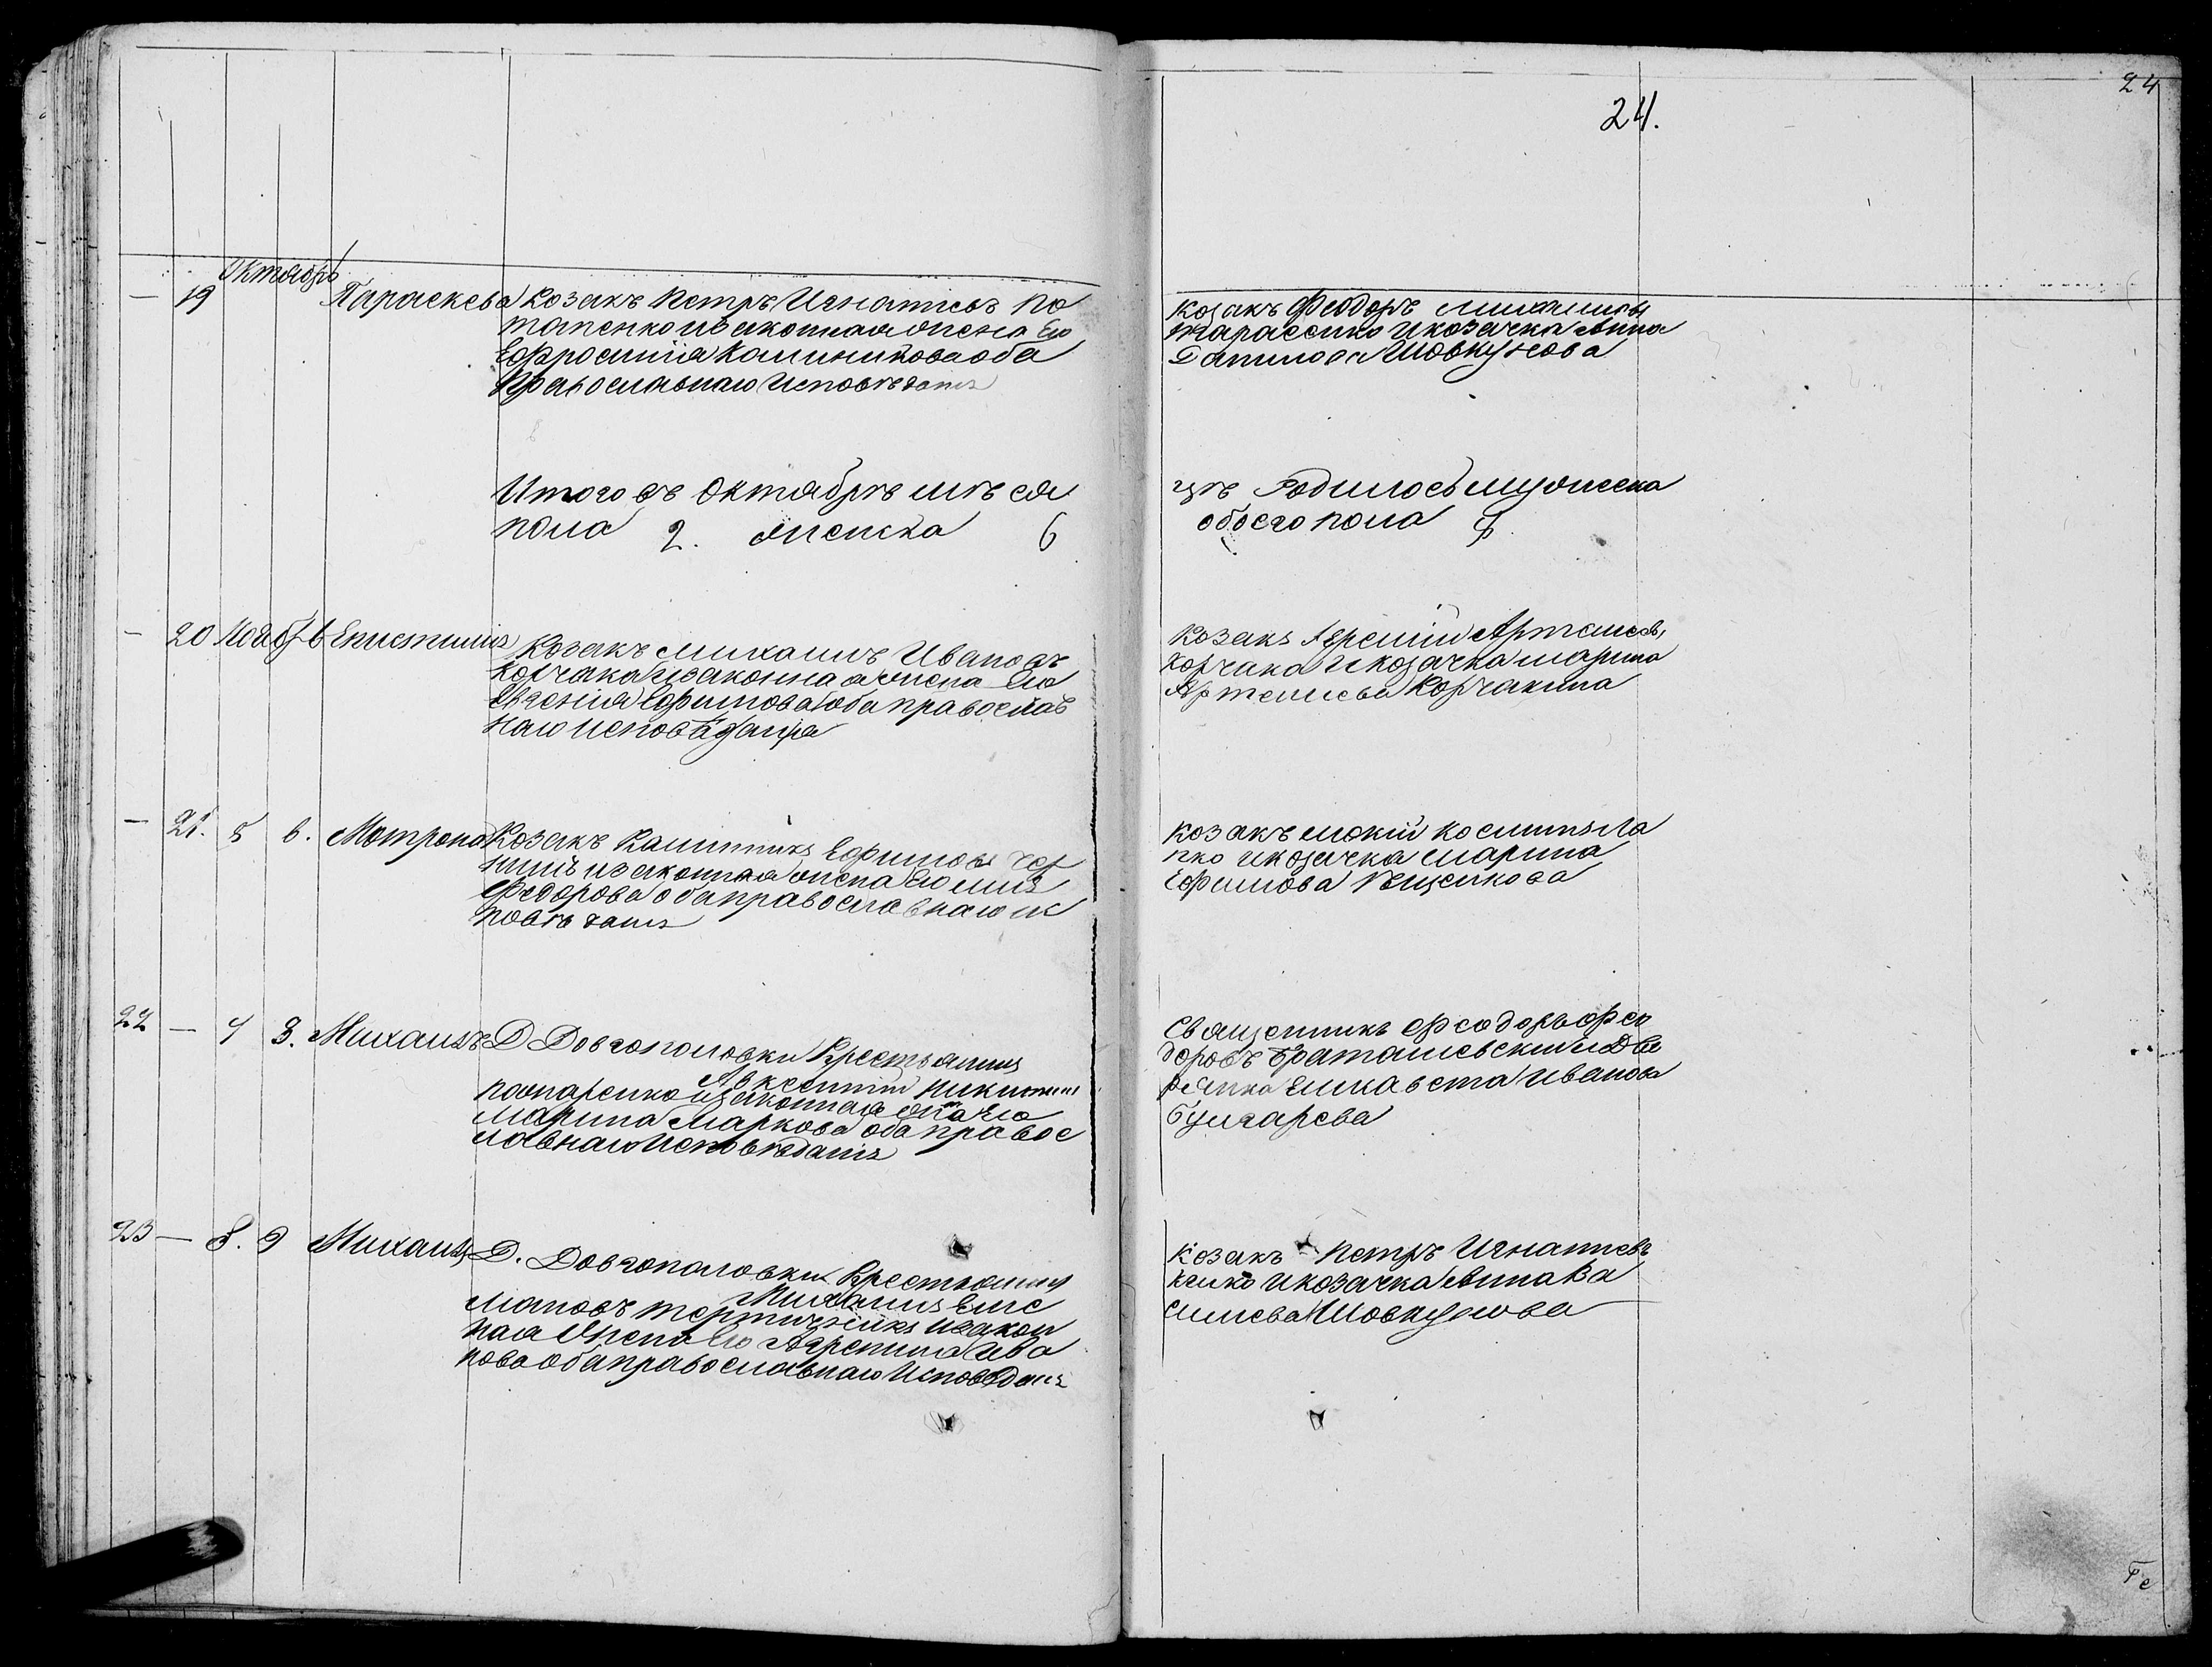 24
24.
Октябрь
— 19 Параскева Козакъ Петръ Игнатіевъ По
тапенко и законная жена Его
Ефросинія Калиникова оба
Православнаго Исповѣданія
Козакъ Феодоръ Михаиловъ
Тарасенко и козачка Анна
Данилова Шовкунова
Итого въ Октябрѣ мѣся
цѣ Родилось мужеска
пола 2. женска 6
обоего пола 8
— 20 Нояб 6 Епистимія Козакъ Михаилъ Ивановъ
Корчака и законная жена Его
Евгенія Ефимова оба православ
наго исповѣданія
Козакъ Артемовъ
Корчака и козачка Марина
Артемьева Корчакина
— 21. 5 6. Мотрона Козакъ Калиникъ Ефимовъ
и законная жена Его
Федорова оба православнаго ис
повѣданія
Козакъ Мокій Косминъ
и козачка Марина
Ефимова
22 — 7 8. Михаилъ Д Довгополовки Крестьянинъ
Авксентій Никитинъ
и законная жена Его
Марина Маркова оба правос
лавнаго Исповѣданія
Священникъ Феодоръ Фео
доровъ Браташевскій и Дво
рянка Елисавета Иванова
Булгарева
23 — 8. 9 Михаилъ Д. Довгополовки Крестьянинъ
Михаилъ Еме
льяновъ и закон
ная Жена Его Агрепина Ива
нова оба православнаго Исповѣданія
Козакъ Петръ Игнатіевъ
и козачка Анна Ва
силиева Шовкунова